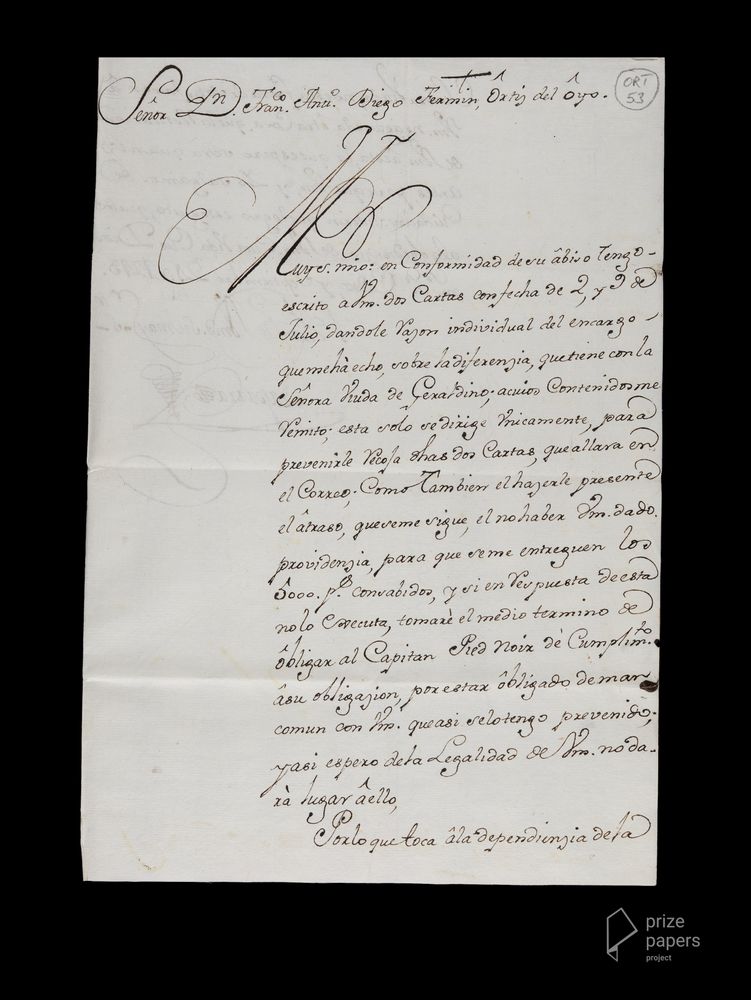 ORT
53
Señor Dn. Franco. Anto. Diego Fermin, Ôrtiz del ôyo.
Muy s. mio: en Conformidad de su âbiso Tengo
escrito a Vm. dos Cartas con fecha de 2, y 9 de
Julio, dandole Razon individual del encargo
que me hà echo, sobre la diferenzia, que tiene con la
Señora Viuda de Geraldino; a cuios Contenidos me
Remito; esta solo se dirige Vnicamente, para
prevenirle Recoja dhas dos Cartas, que allara en
el Correo; Como Tambien el hazerle presente
el âtraso, que se me sigue, el no haber Vm. dado
providenzia, para que se me entreguen los
5000. ps. consabidos, y si en Respuesta de esta
no lo Executa, tomarè el medio termino de
ôbligar al Capitan Pied Noir dè Cumplimto.
âsu obligazion, por estar ôbligado de man
comun con Vm. que asi se lo tengo prevenido;
y asi espero de la Legalidad de Vm. no da-
rà lugar âello,
Por lo que toca âla dependienzia de la
prize
papers
project